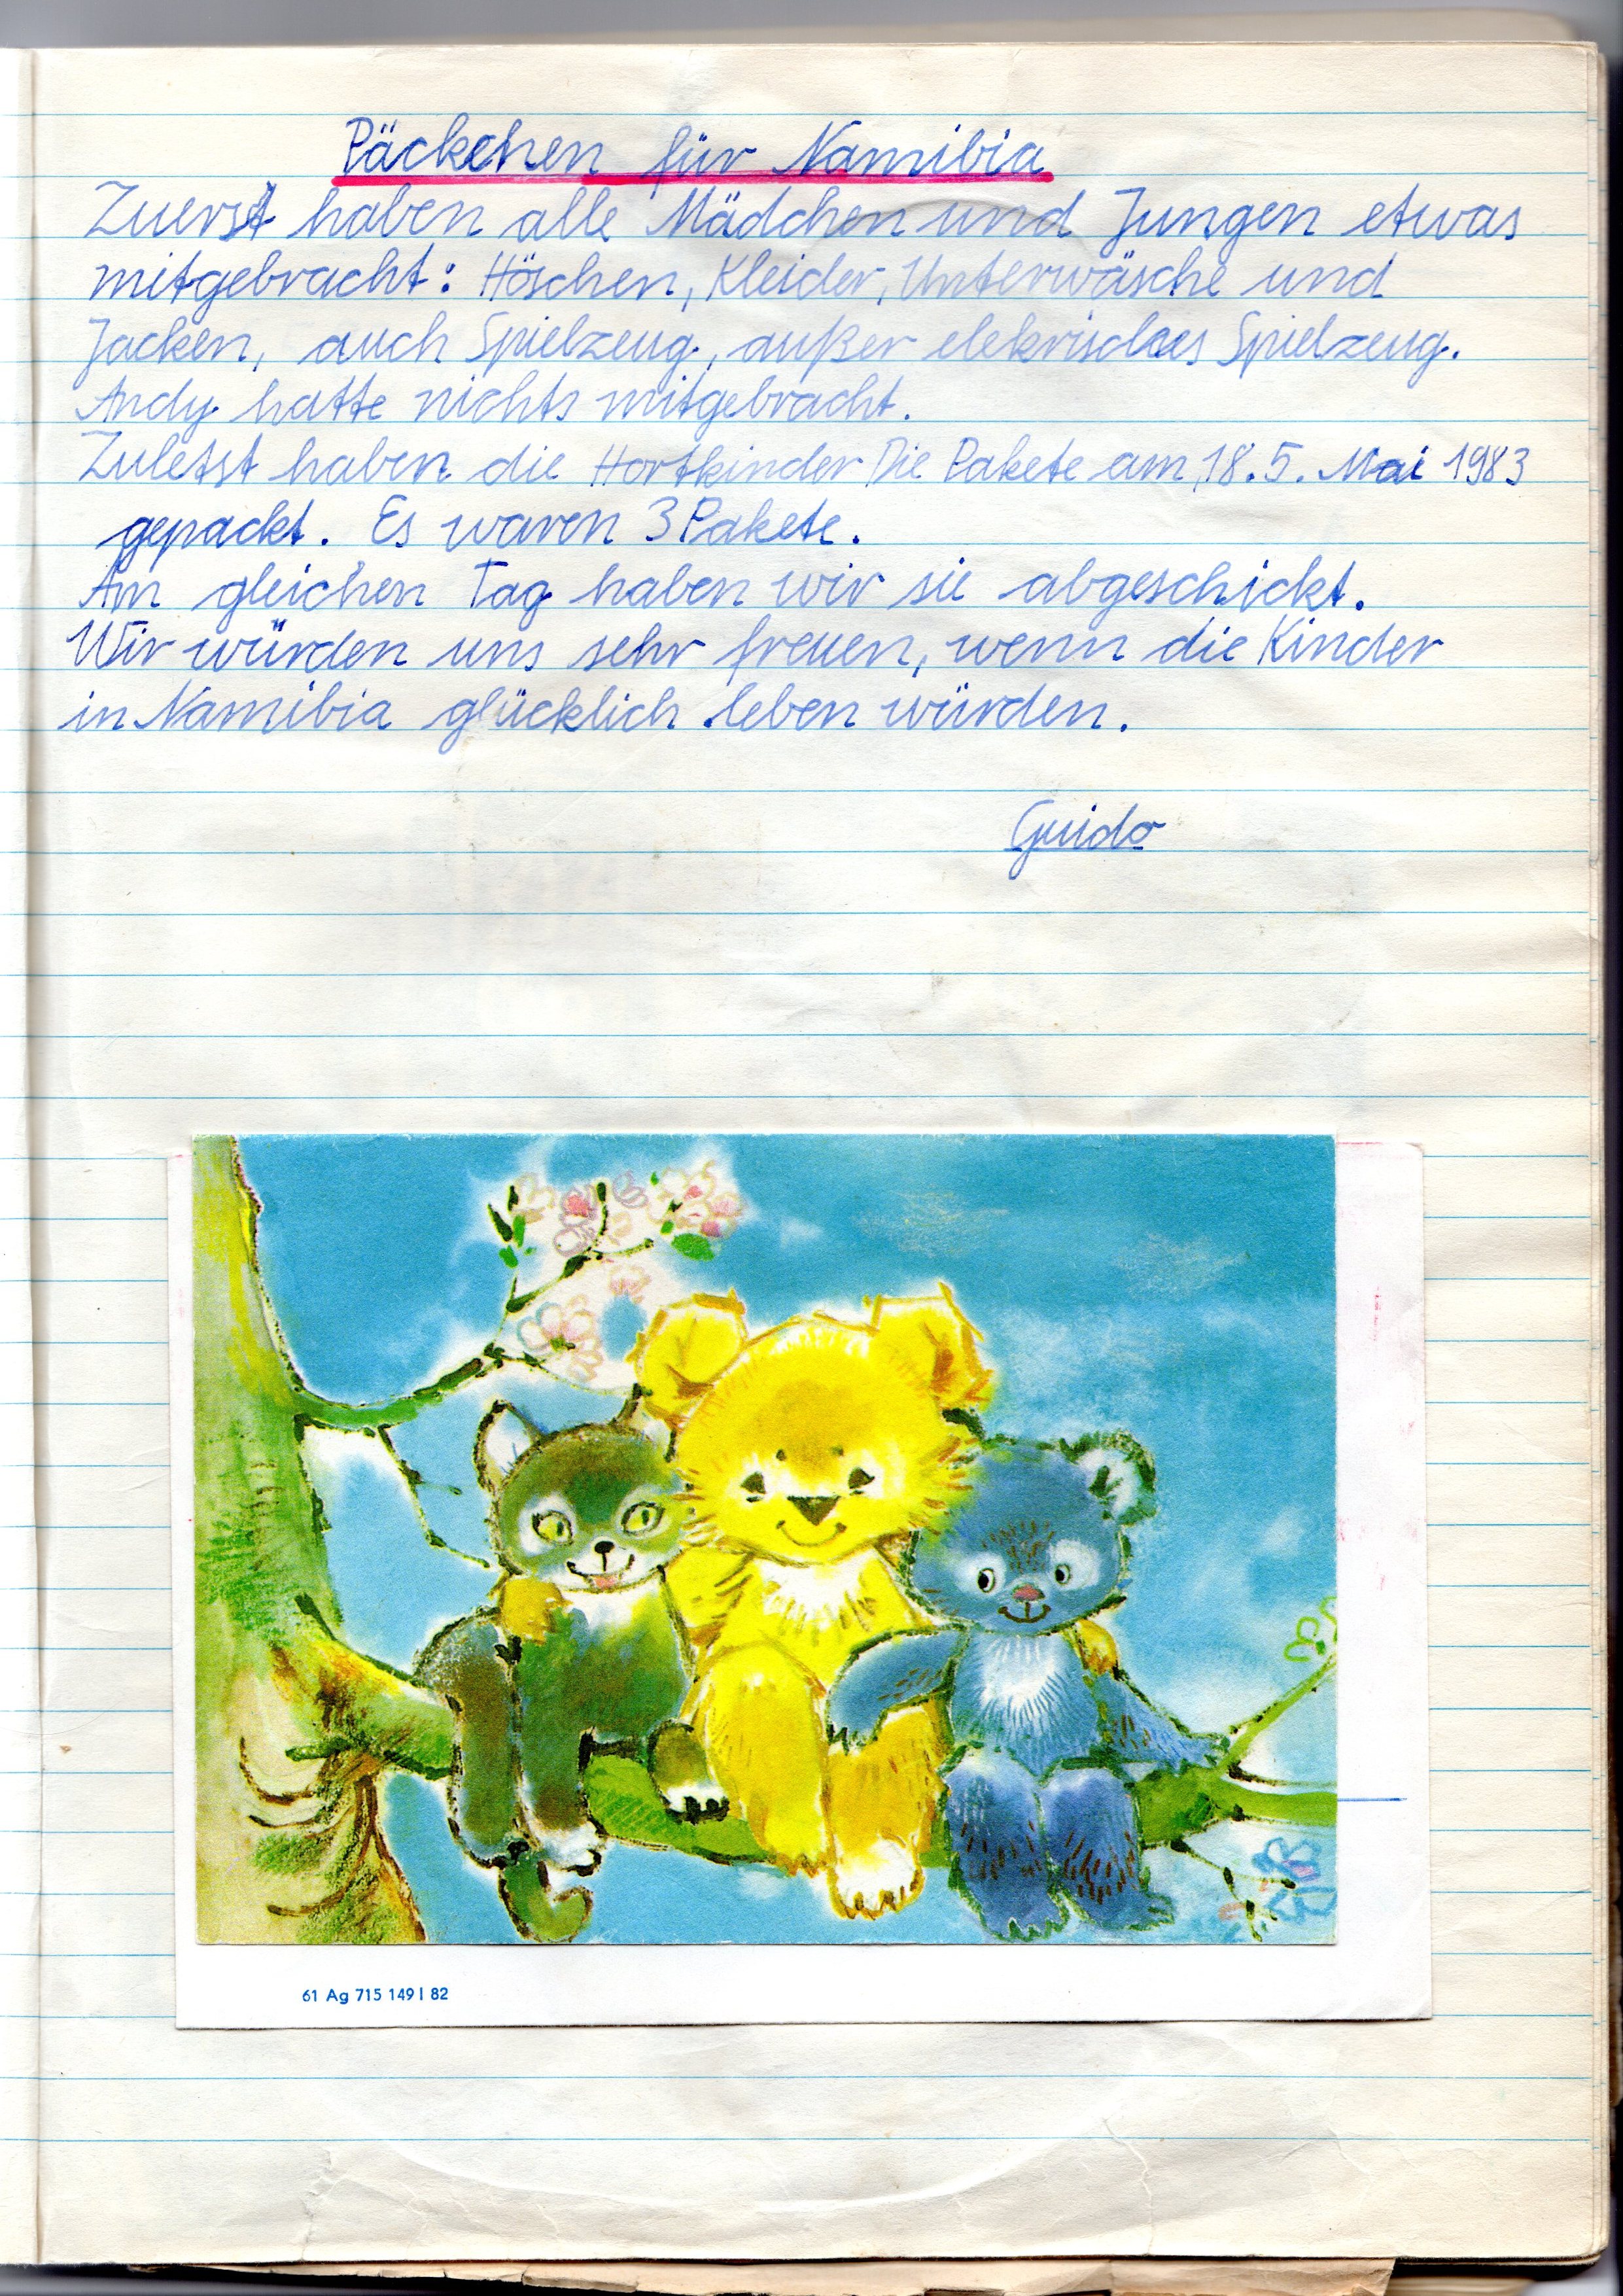 Päckchen für Namibia
Zuerst haben alle Mädchen und Jungen etwas
mitgebracht: Höschen, Kleider, Unterwäsche und
Jacken, auch Spielzeug, außer elekrisches Spielzeug.
Andy hatte nichts mitgebracht.
Zuletst haben die Hortkinder Die Pakete am 18.5. Mai 1983
gepackt. Es waren 3 Pakete.
Am gleichen Tag haben wir sie abgeschickt.
Wir würden uns sehr freuen, wenn die Kinder
in Namibia glücklich leben würden.
Guido
61 Ag 715 149 I 82